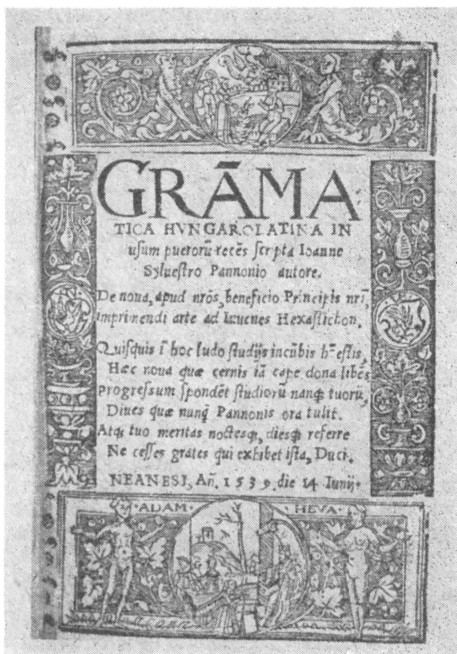 GRÃMA
TICA HVNGAROLATINA IN
usum puerorũ recēs scripta Ioanne
Syluestro Pannonio autore.
De noua, apud nr̃os, beneficio Principis nr̃i,
imprimendi arte ad Iuuenes Hexastichon.
Quisquis ĩ hoc ludo studijs incũbis hõestis,
Haec noua quae cernis iã cape dona libẽs
Progressum spondẽt studiorũ nanq; tuorũ,
Diues quae nunq̃ Pannonis ora tulit.
Atq; tuo meritas noctesq;, diesq; referre
Ne cesses grates qui exhibet ista, Duci.
NEANESI, Añ. 1539. die 14 Iunij.
ADAM HEVA